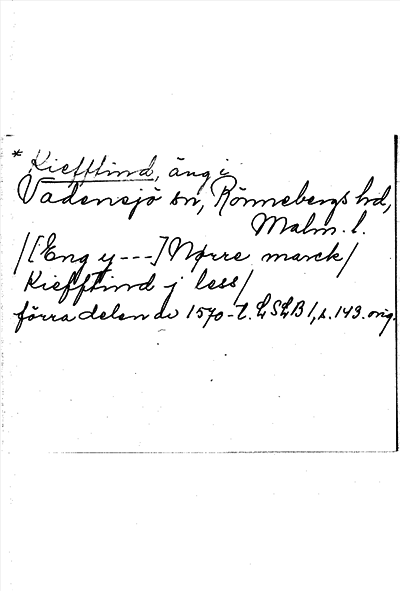 * Kiefftind, äng i
Vadensjö sn, Rönnebergs hd,
Malm. l.
/[Eng y ---] Nørre marck/
Kiefftind j less/
förra delen av 1570-t. LSLB 1, s. 143. orig.